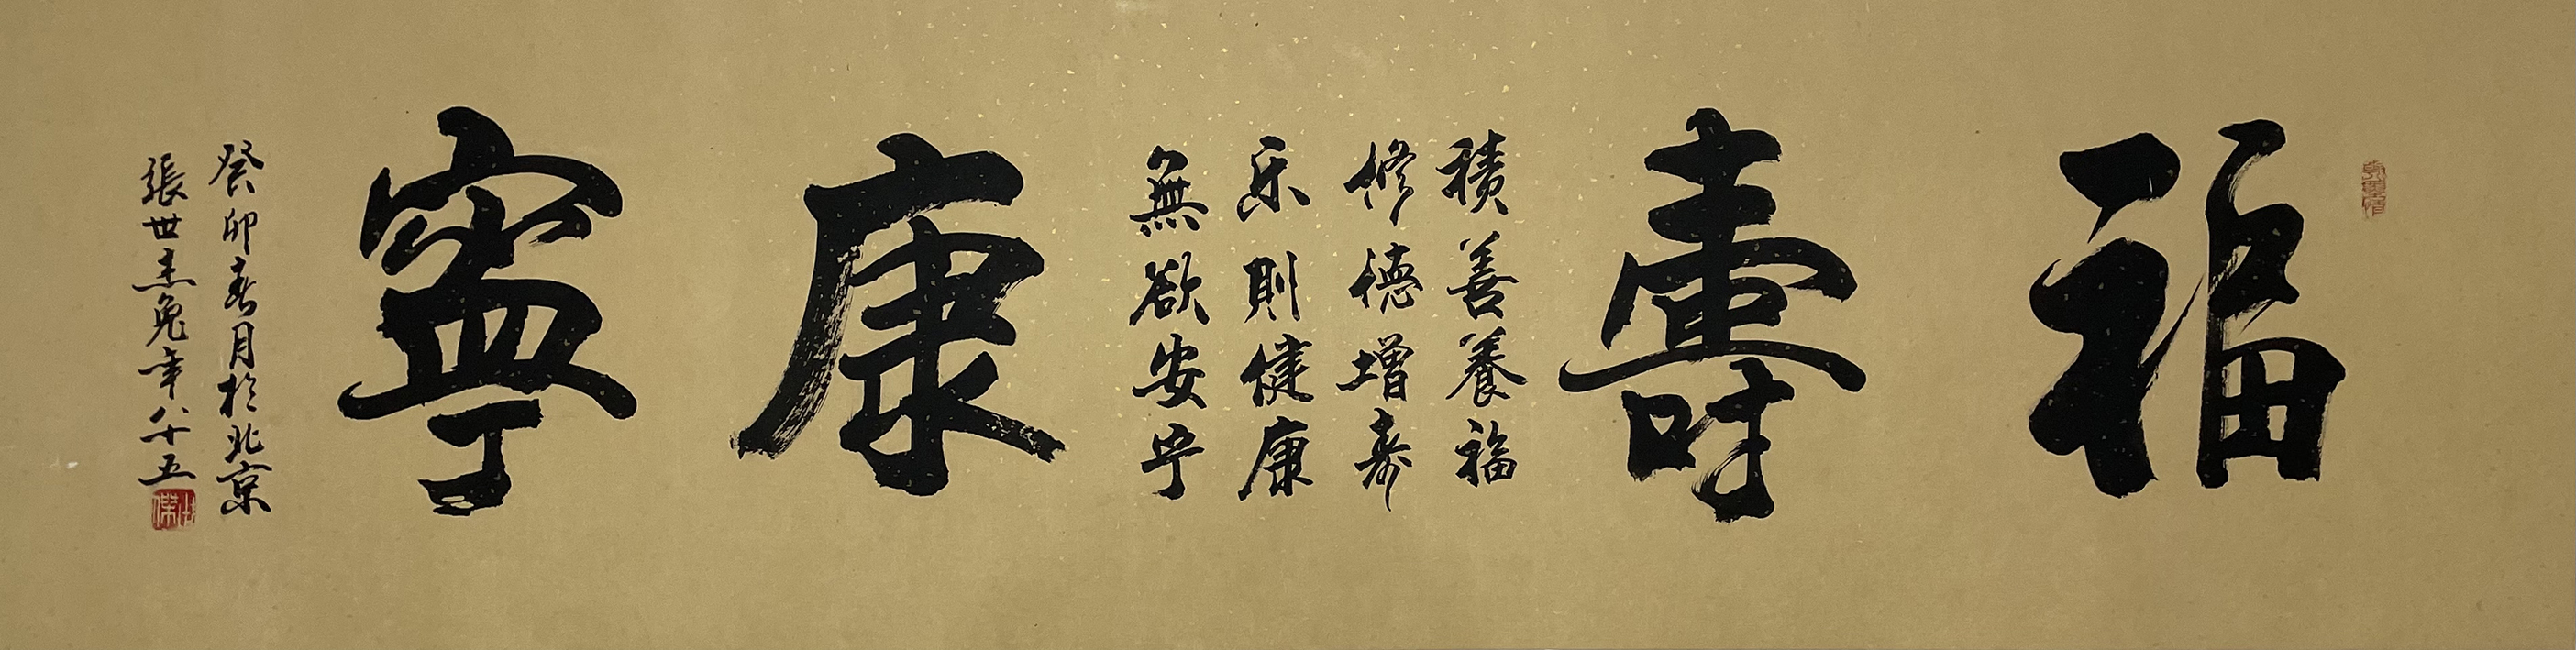 福
壽
積善養福
修德增壽
乐則健康
無欲安宁
康
寧
癸卯春月於北京
張世杰兔年八十五